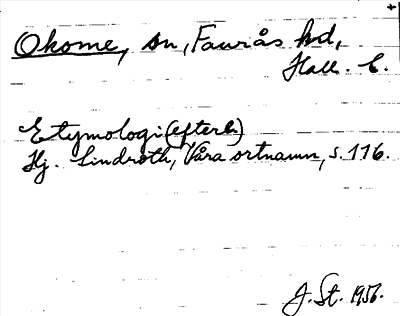 Okome, sn, Faurås hd,
Hall. l.
Etymologi (efterl.)
Hj. Lindroth, Våra ortnamn, s. 116.
J. St. 1956.